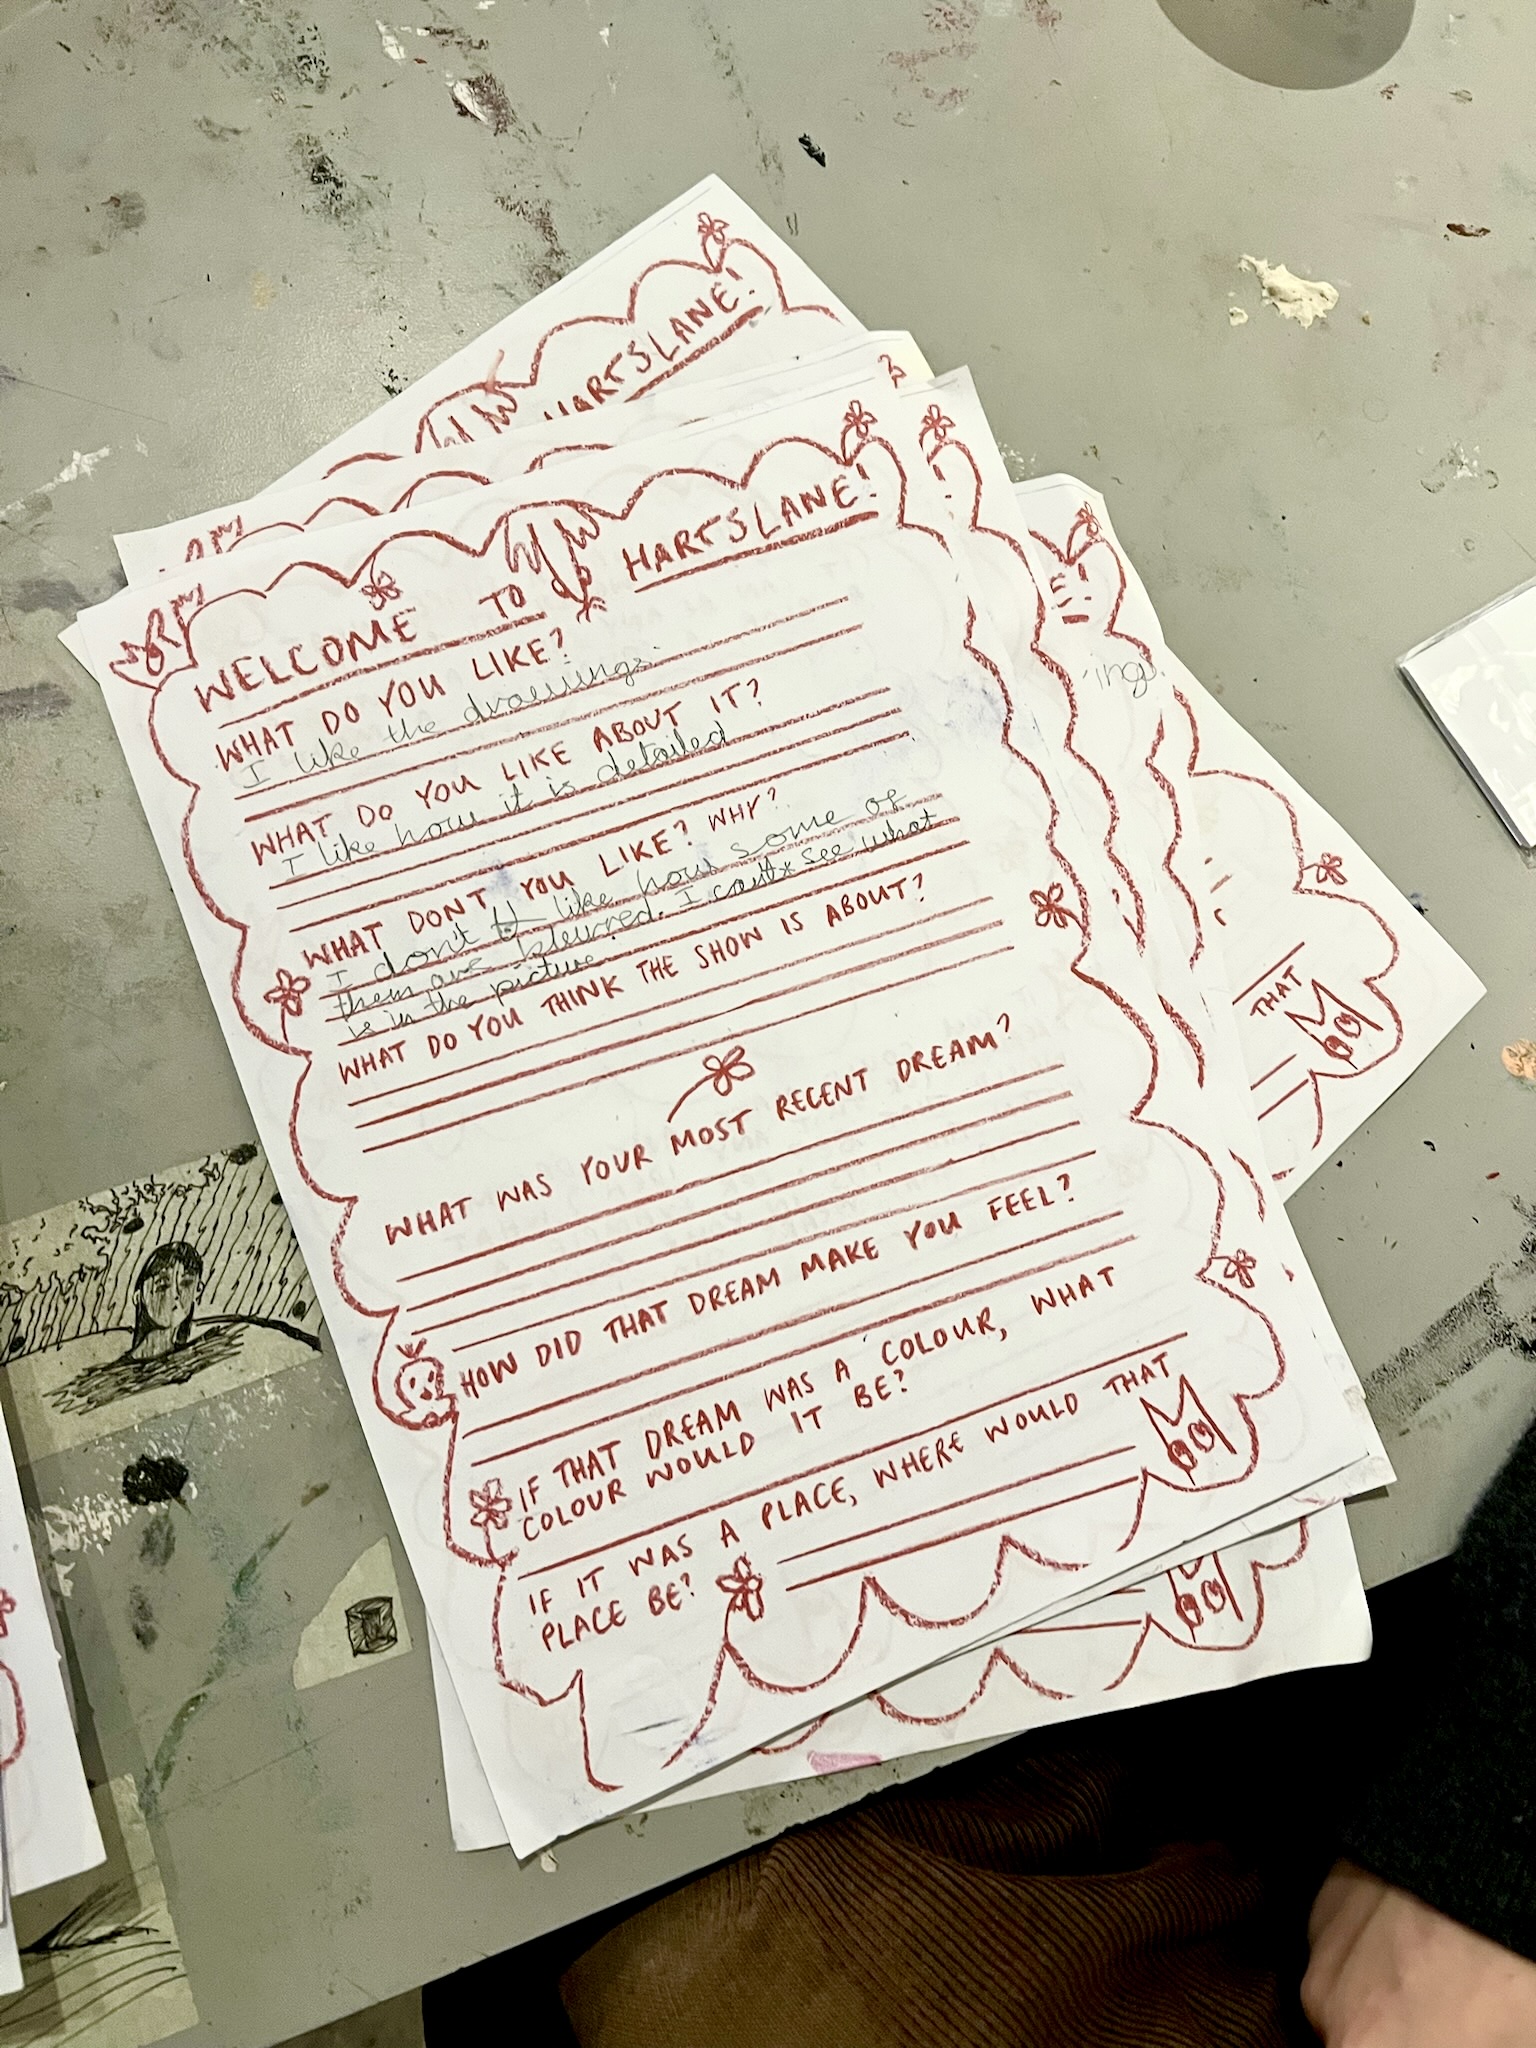 HARTSLANE!
WELCOME TO HARTSLANE!
WHAT DO YOU LIKE?
I like the drawings.
WHAT DO YOU LIKE ABOUT IT?
I like how it is detailed
WHAT DONT YOU LIKE? WHY?
I don't like how some of
them are blurred. I can't see what
is in the picture.
WHAT DO YOU THINK THE SHOW IS ABOUT?
WHAT WAS YOUR MOST RECENT DREAM?
HOW DID THAT DREAM MAKE YOU FEEL?
IF THAT DREAM WAS A COLOUR, WHAT
COLOUR WOULD IT BE?
IF IT WAS A PLACE, WHERE WOULD THAT
PLACE BE?
ings.
THAT